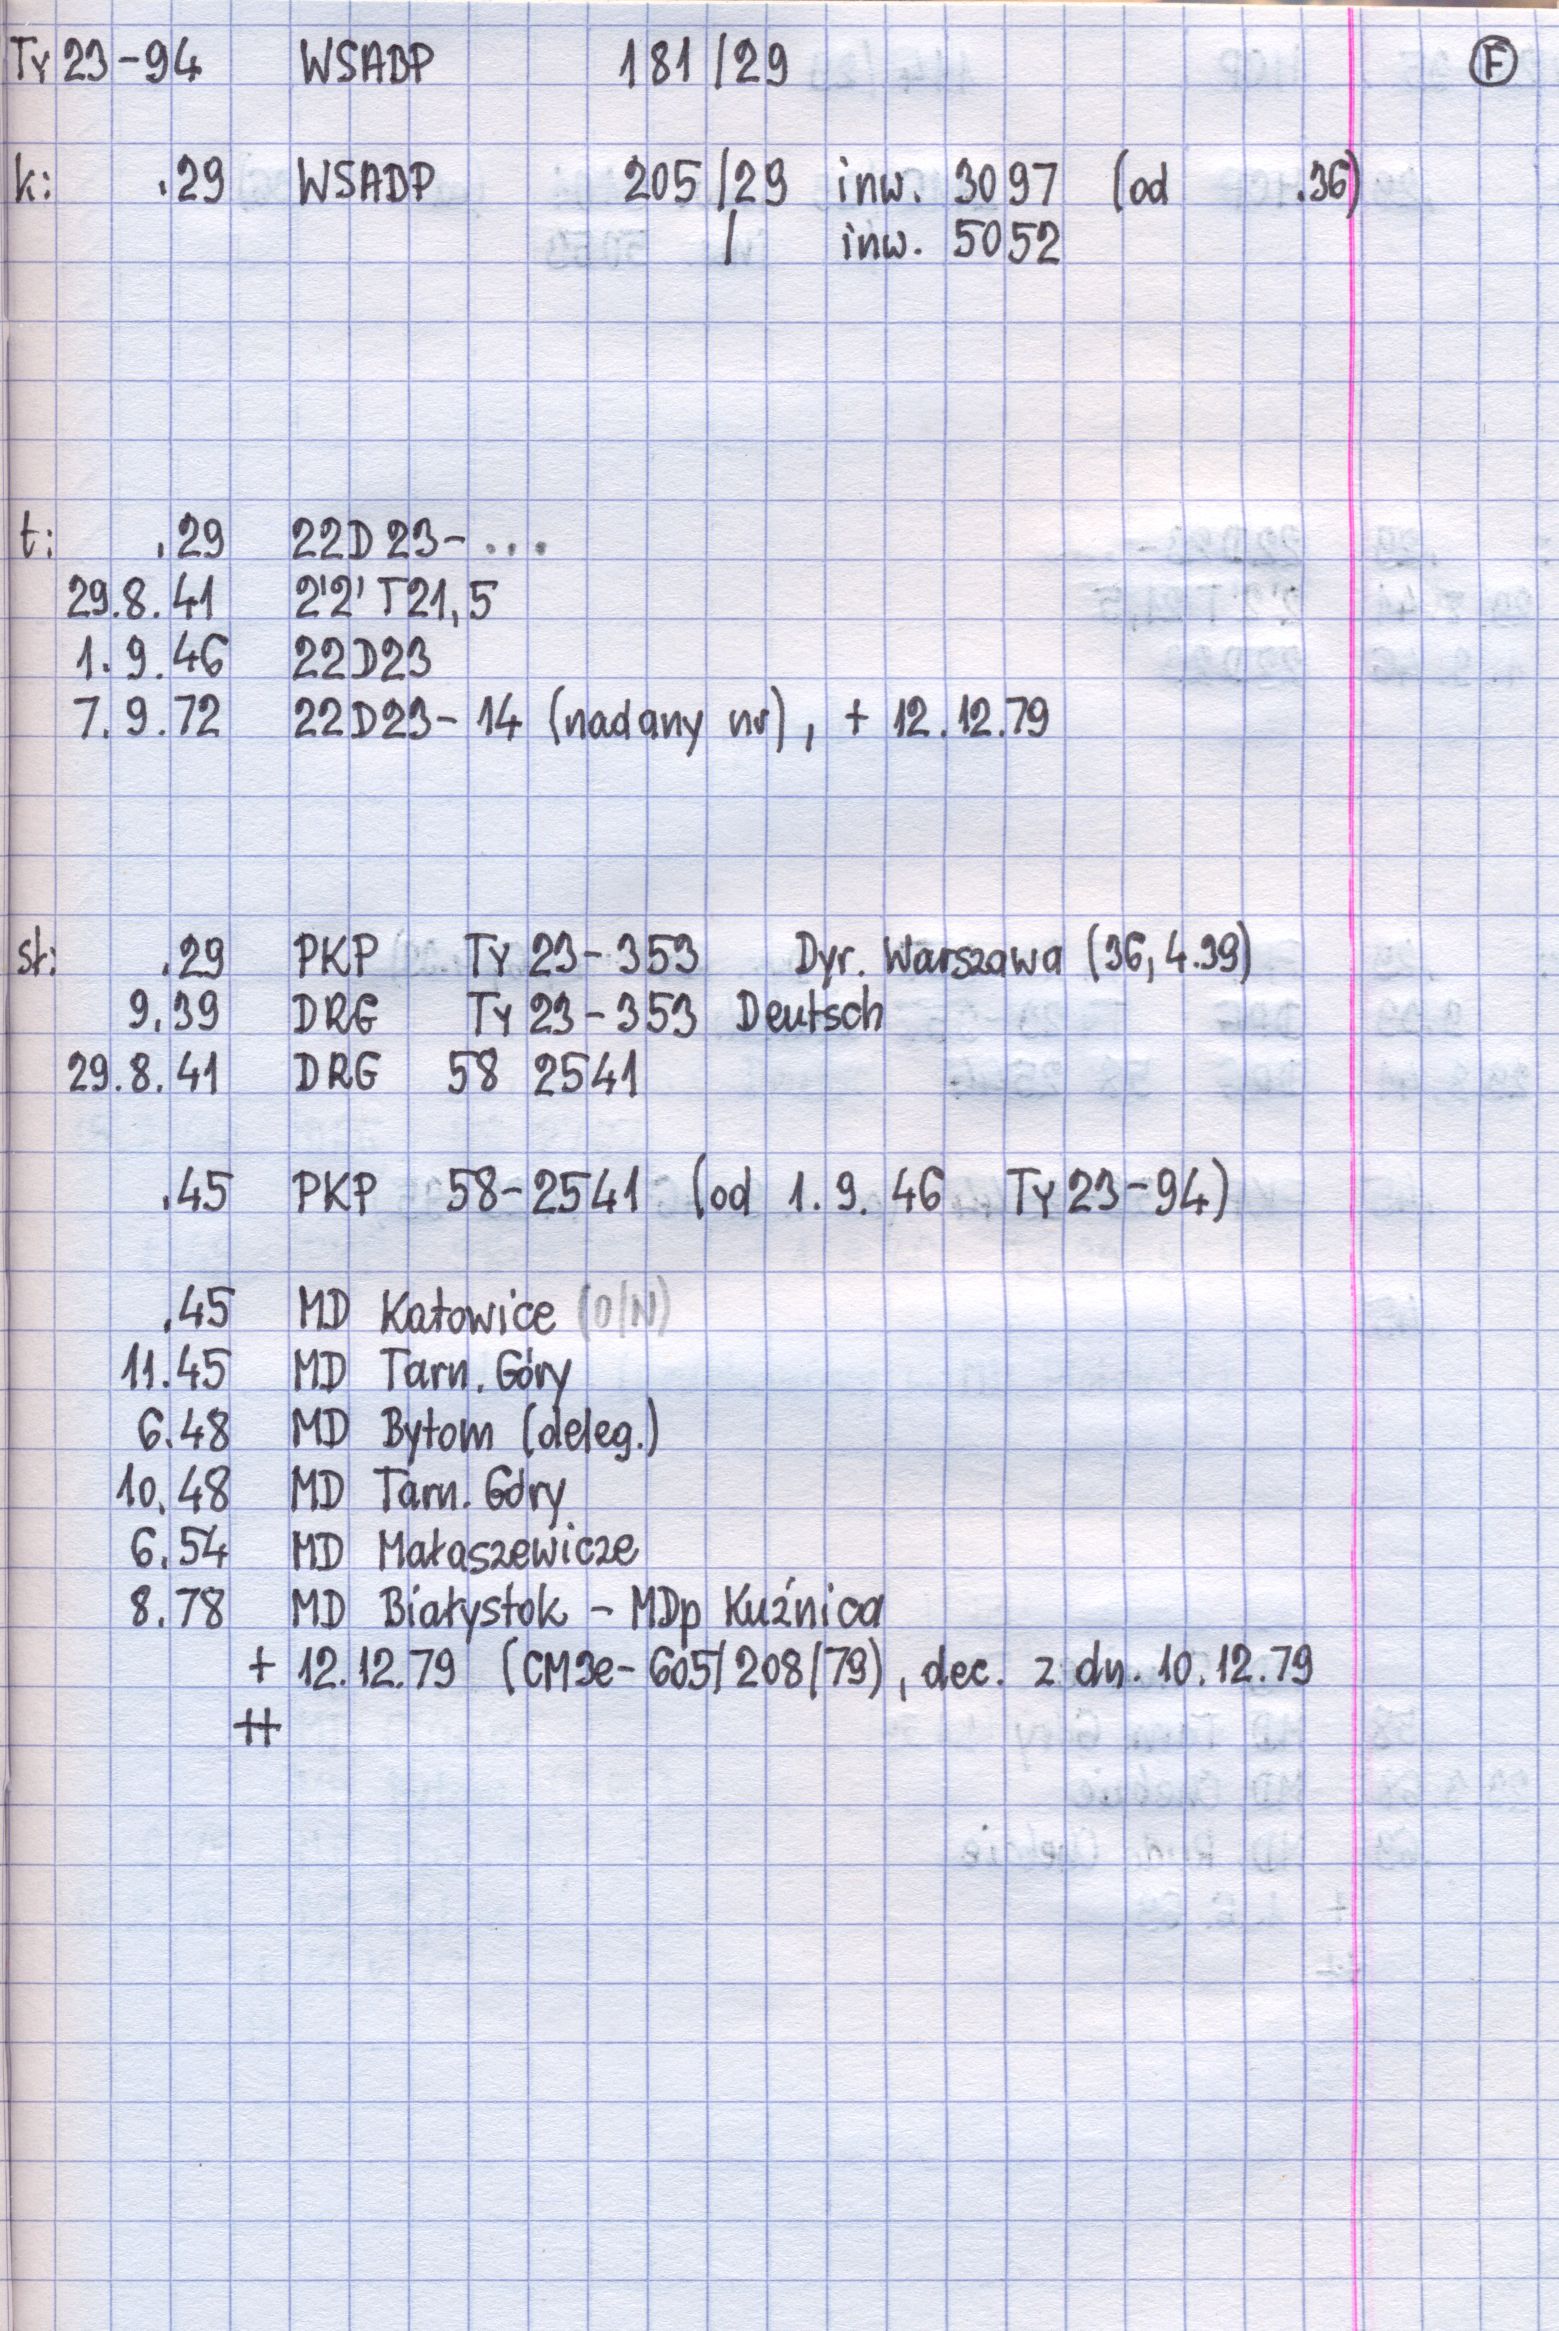 Ty 23-94 WSABP 181/29 F
k: .29 WSABP 205/29 inw. 3097 (od .36)
/ inw. 5052
t: .29 22D23-...
29.8.41 2'2' T21,5
1.9.46 22D23
7.9.72 22D23-14 (nadany nr), + 12.12.79
st: .29 PKP Ty 23-353 Dyr. Warszawa (36, 4.39)
9.39 DRG Ty 23-353 Deutsch
29.8.41 DRG 58 2541
.45 PKP 58-2541 (od 1.9.46 Ty 23-94)
.45 MD Katowice
11.45 MD Tarn. Góry
6.48 MD Bytom (deleg.)
10.48 MD Tarn. Góry
6.54 MD Małaszewicze
8.78 MD Białystok - MDp Kuźnica
+ 12.12.79 (CM3e-605/208/79), dec. z dn. 10.12.79
++